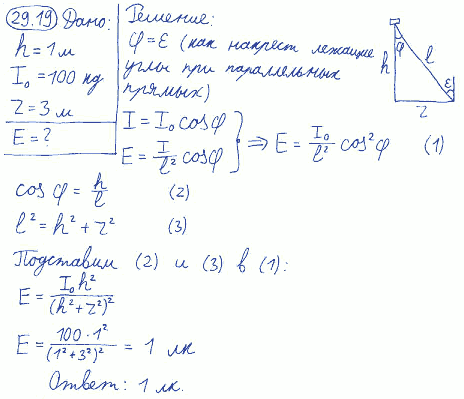 29.19 Дано:
h = 1 м
I₀ = 100 кд
Z = 3 м
E = ?
Решение:
φ = ε (как накрест лежащие
углы при параллельных
прямых)
I = I₀ cos φ
E = I/l² cos φ
⇒ E = I₀/l² cos² φ (1)
h φ l ε
Z
cos φ = h/l (2)
l² = h² + z² (3)
Подставим (2) и (3) в (1):
E = I₀ h²/(h² + z²)²
E = 100 · 1²/(1² + 3²)² = 1 лк
Ответ: 1 лк.